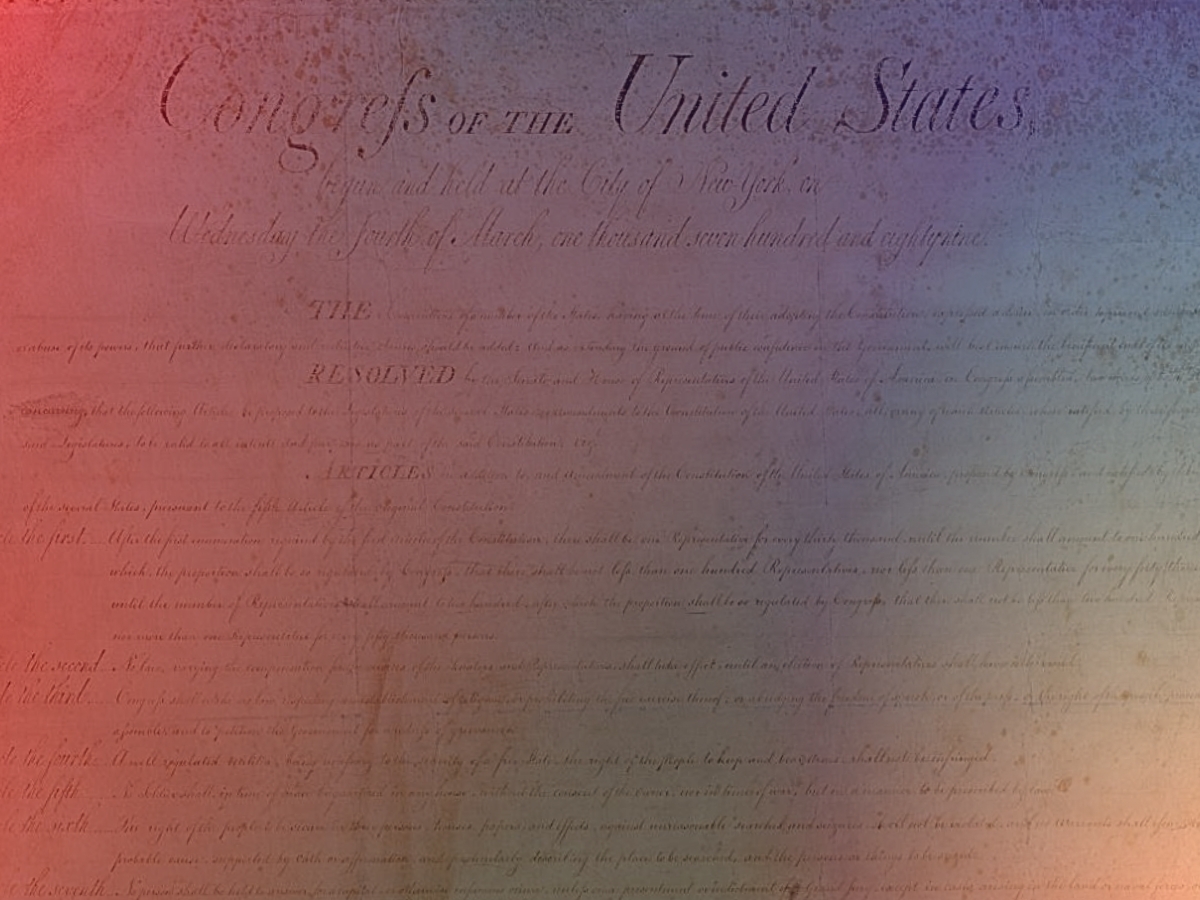 Congreſs OF THE United States,
begun and held at the City of New-York, on
Wednesday the fourth of March, one thousand seven hundred and eighty nine.
THE Conventions of a number of the States, having at the time of their adopting the Constitution, expressed a desire, in order to prevent
or abuse of its powers, that further declaratory and restrictive clauses should be added: And as extending the ground of public confidence in the Government, will best ensure the beneficent ends of
RESOLVED by the Senate and House of Representatives of the United States of America, in Congreſs aſsembled, two thirds of
concurring, that the following Articles be proposed to the Legislatures of the several States, as amendments to the Constitution of the United States, all, or any of which Articles, when ratified by three fourths
said Legislatures, to be valid to all intents and purposes, as part of the said Constitution; viz.
ARTICLES in addition to, and Amendment of the Constitution of the United States of America, proposed by Congreſs, and ratified by
of the several States, pursuant to the fifth Article of the original Constitution.
the first. After the first enumeration required by the first Article of the Constitution, there shall be one Representative for every thirty thousand, until the number shall amount to one hundred
which, the proportion shall be so regulated by Congreſs, that there shall be not leſs than one hundred Representatives, nor leſs than one Representative for every forty
until the number of Representatives shall amount to two hundred, after which the proportion shall be so regulated by Congreſs, that there shall not be leſs than two hundred
nor more than one Representative for every fifty thousand persons.
the second. No law, varying the compensation for the services of the Senators and Representatives, shall take effect, until an election of Representatives shall have intervened.
the third. Congreſs shall make no law respecting an establishment of religion, or prohibiting the free exercise thereof; or abridging the freedom of speech, or of the preſs; or the right of the people
aſsemble, and to petition the Government for a redreſs of grievances.
the fourth. A well regulated Militia, being neceſsary to the security of a free State, the right of the People to keep and bear Arms, shall not be infringed.
the fifth. No Soldier shall, in time of peace be quartered in any house, without the consent of the owner, nor in time of war, but in a manner to be prescribed by law.
the sixth. The right of the people to be secure in their persons, houses, papers, and effects, against unreasonable searches and seizures, shall not be violated, and no Warrants shall iſsue,
probable cause, supported by Oath or affirmation, and particularly describing the place to be searched, and the persons or things to be seized.
the seventh. No person shall be held to answer for a capital, or otherwise infamous crime, unleſs on a presentment or indictment of a Grand Jury, except in cases arising in the land or naval forces,